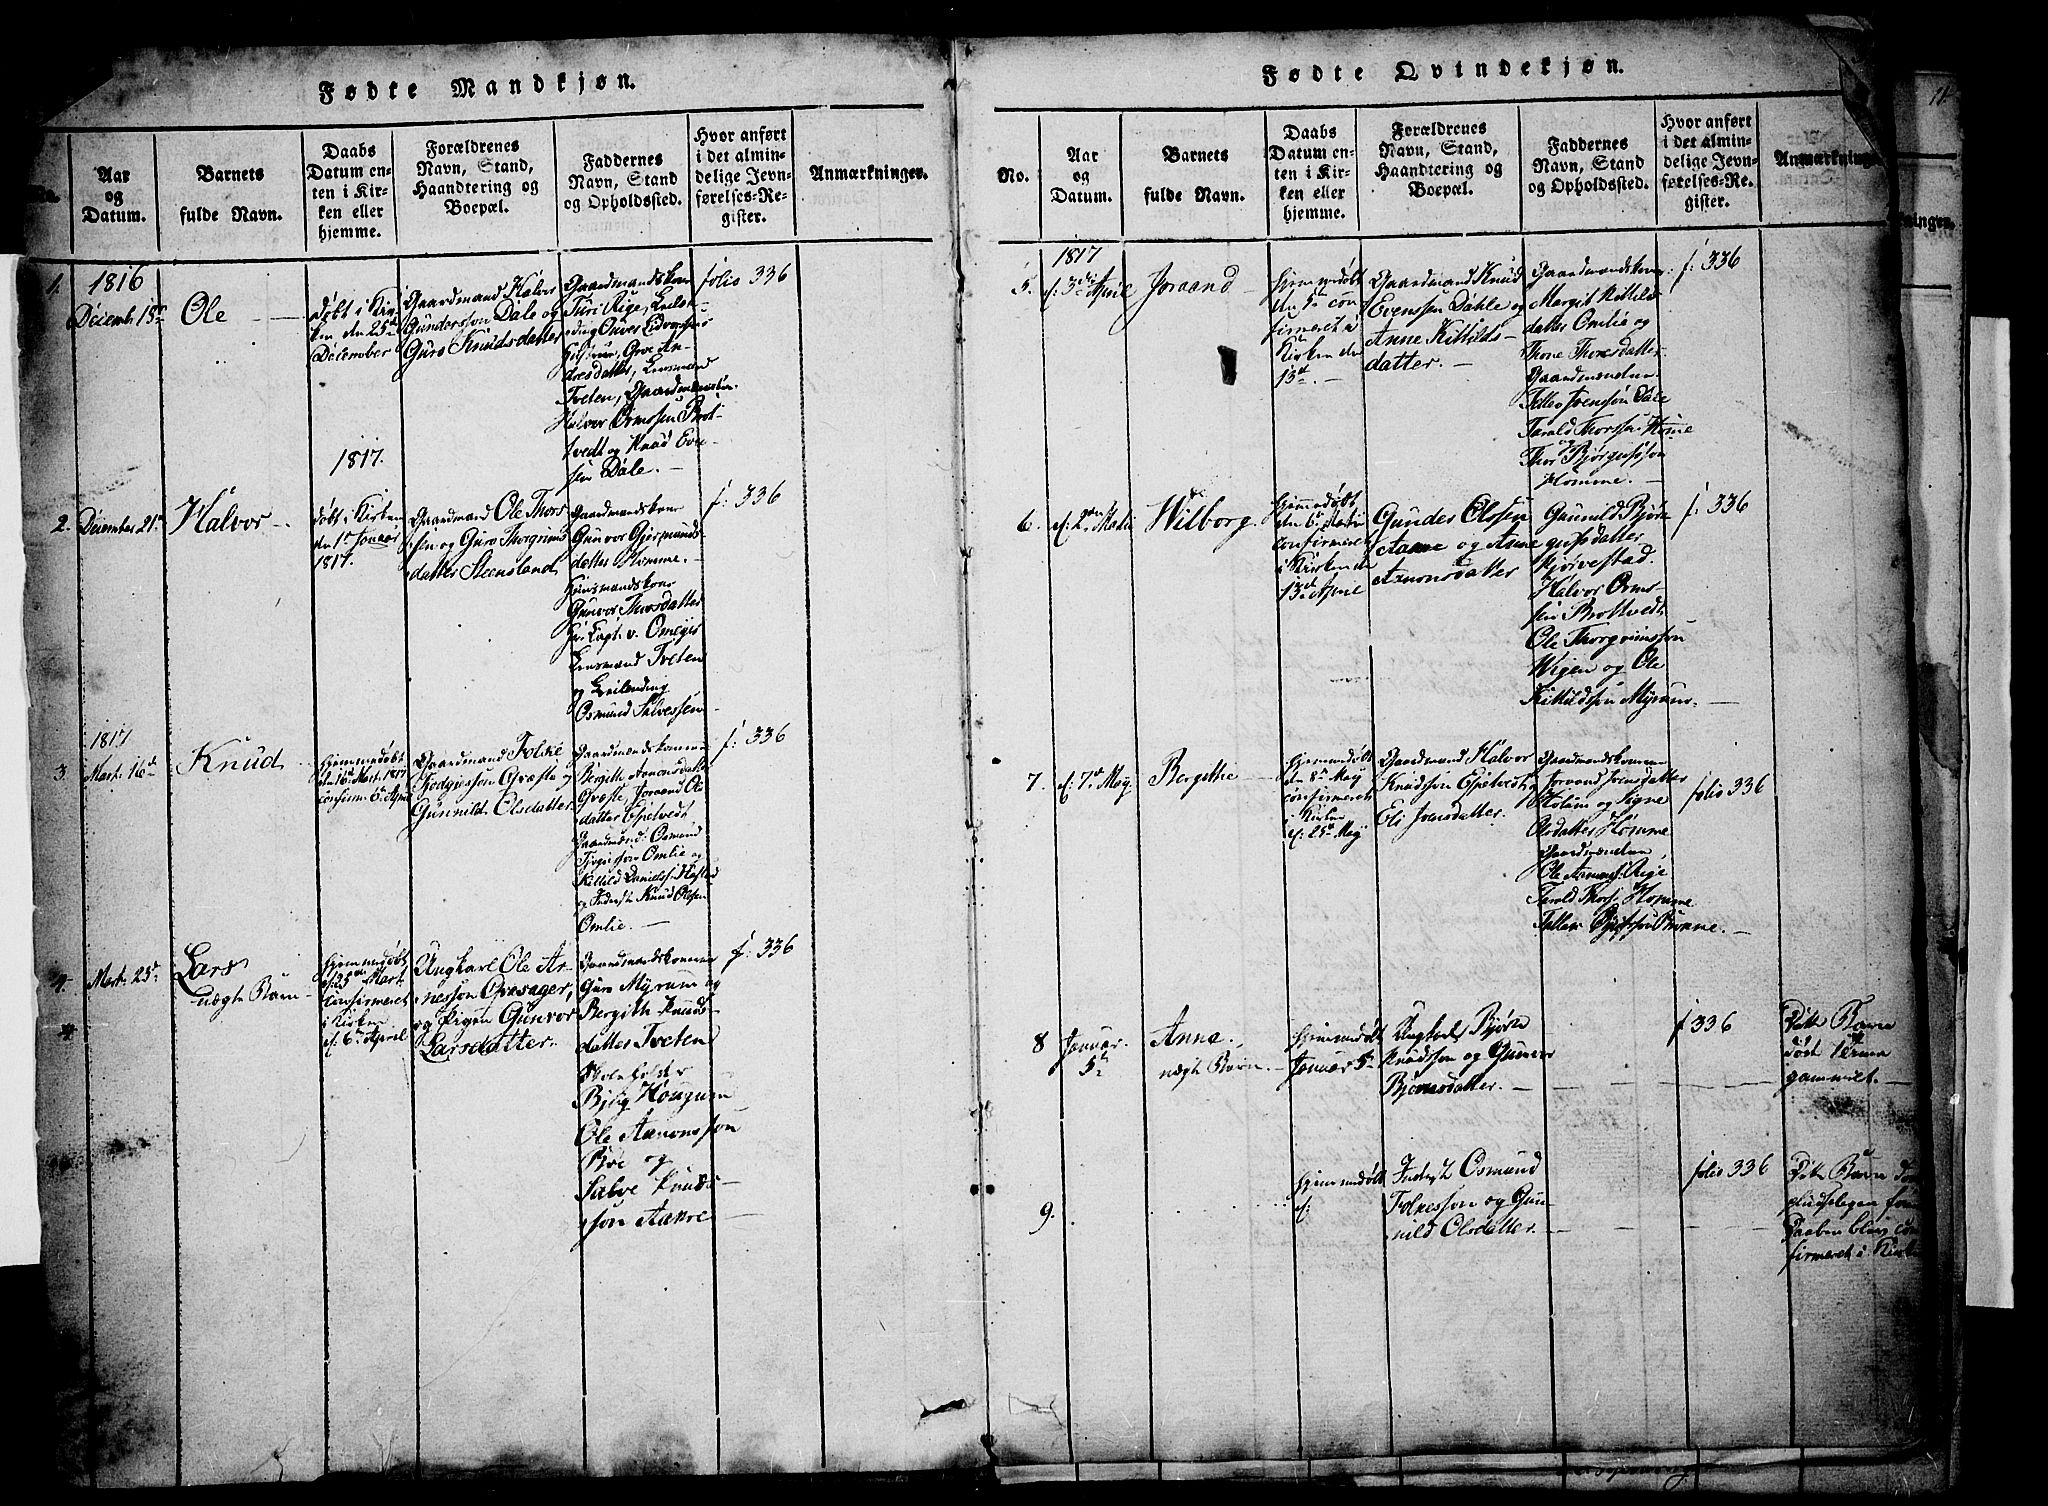 Fødte Mandkjøn.
Aar og Datum.
Barnets fulde Navn.
Daabs Datum enten i Kirken eller hjemme.
Forældrenes Navn, Stand, Haandtering og Boepæl.
Faddernes Navn, Stand og Opholdssted.
Hvor anført i det almindelige Jevnførelses-Register.
Anmærkninger.
1.
1816
Decemb. 15de
Ole
døbt i Kirken den 25de December
Gaardmand Halvor
Gundersson Dale og
Guro Knudsdatter
Gaardmandskone
Turi Rige,
Lensmand
Tveten, Gaardmændene
Halvor Ormssen Brottvedt og Knud Evensen Dale.
folio 336
1817.
2.
December 21de
Halvor
døbt i Kirken
den 1ste Januar
1817.
Gaardmand Ole Thorssen og Guro Thorgrimsdatter Steensland
Gaardmandskone
Gunvor Gjermundsdatter Homme.
Huusmandskone
Gunvor Thorsdatter
Hr. Capt. v. Omeyer
Lensmand Tveten
og Leilending
Osmund Salvessen
f: 336
1817
3.
Mart: 16de
Knud
hjemmedøbt
den 16de Mart. 1817
confirm: 6te April
Gaardmand Folke
Tjodgiersson Græste og
Gunnild Olsdatter
Gaardmandskonerne
Bergith Aanonsdatter
Græste, Joraand Olsdatter Espetvedt
Gaardmænd: Osmund
Omlie og
Kittild Danielss:
og Inderste Knud Olsen
Omlie.
f: 336
4.
Mart: 25de
Lars
uægte Barn
hjemmedøbt
d: 25de Mart.
confirmeret
i Kirken
d: 6te April
Ungkarl Ole Arnesson Ovesager,
og Pigen Gunvor
Larsdatter.
Gaardmandskonerne
Guro Myrum og
Bergith Knudsdatter Tveten
Skoleholder
Bjørg Hougum
Ole Aanonssøn
Boe og
Salve Knudsson Aakre
f: 336
Fødte Qvindekjøn.
No.
Aar og Datum.
Barnets fulde Navn.
Daabs Datum enten i Kirken eller hjemme.
Forældrenes Navn, Stand, Haandtering og Boepæl.
Faddernes Navn, Stand og Opholdssted.
Hvor anført i det almindelige Jevnførelses-Register.
Anmærkninger
5.
1817
d: 3die Aprile
Joraand
hjemmedøbt
den 5te confirmeret i
Kirken den
13de
Gaardmand Knud
Evenssen Dahle og
Anne Kittildsdatter.
Gaardmandskone
Margit Kittildsdatter Omlie og
Thone Thorsdatter
Gaardmændene
Tellev Jvenssøn Dale
Tarald Thorssøn Homme
og
Thor Bjørgufssøn
Homme.
f: 336
6.
d: 2den Martii
Wilborg.
hjemmedøbt
den 6te Martii
confirmeret
i Kirken den
13de April
Gunder Olssen
Aamre og Anne
Aanonsdatter
Gunild Bjørgufsdatter
Kjørvestad.
Halvor Ormssen Brottvedt
Ole Thorgrimssøn
Wigen og Ole
Kittildssøn Myrum.
f: 336
7.
d: 7de May
Bergithe
hjemmedøbt
den 8de May
confirmeret
i Kirken
d: 25de May
Gaardmand Halvor
Knudsson Espetvedt,
Eli Jvensdatter.
Gaardmandskonerne
Joraand Jvensdatter
Holum og Signe
Olsdatter Homme
Gaardmændene
Ole Aanonss: Rige
Tarald Thorss: Homme
folio 336
8
Januar.
5te
Anna.
uægte Barn.
hjemmedøbt
Januar 5te
Ungkarl Bjørn
Knudsson og Gunvor
Bjørnsdatter.
f 336
Dette Barn
døde
gammelt.
9.
hjemmedøbt
d:
Inderst Osmund
Folkesson og Gunnild Olsdatter.
folio 336
Dette Barn
Daaben blev confirmeret i Kirken